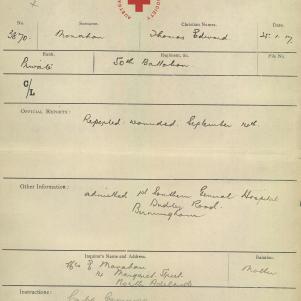 SOCIETY
No. Surname. Christian Names. Date.
3870. Monahan Thomas Edward 25.1.17.
Rank. Regiment, &c. File No.
Private 50th Battalion
C/L
OFFICIAL REPORTS:
Reported wounded September
Other Information:
admitted 1st Southern General Hospital
Dudley Road
Birmingham
Inquirer's Name and Address. Relation.
Mrs Monahan Mother
Margaret Street
North Adelaide
Instructions: